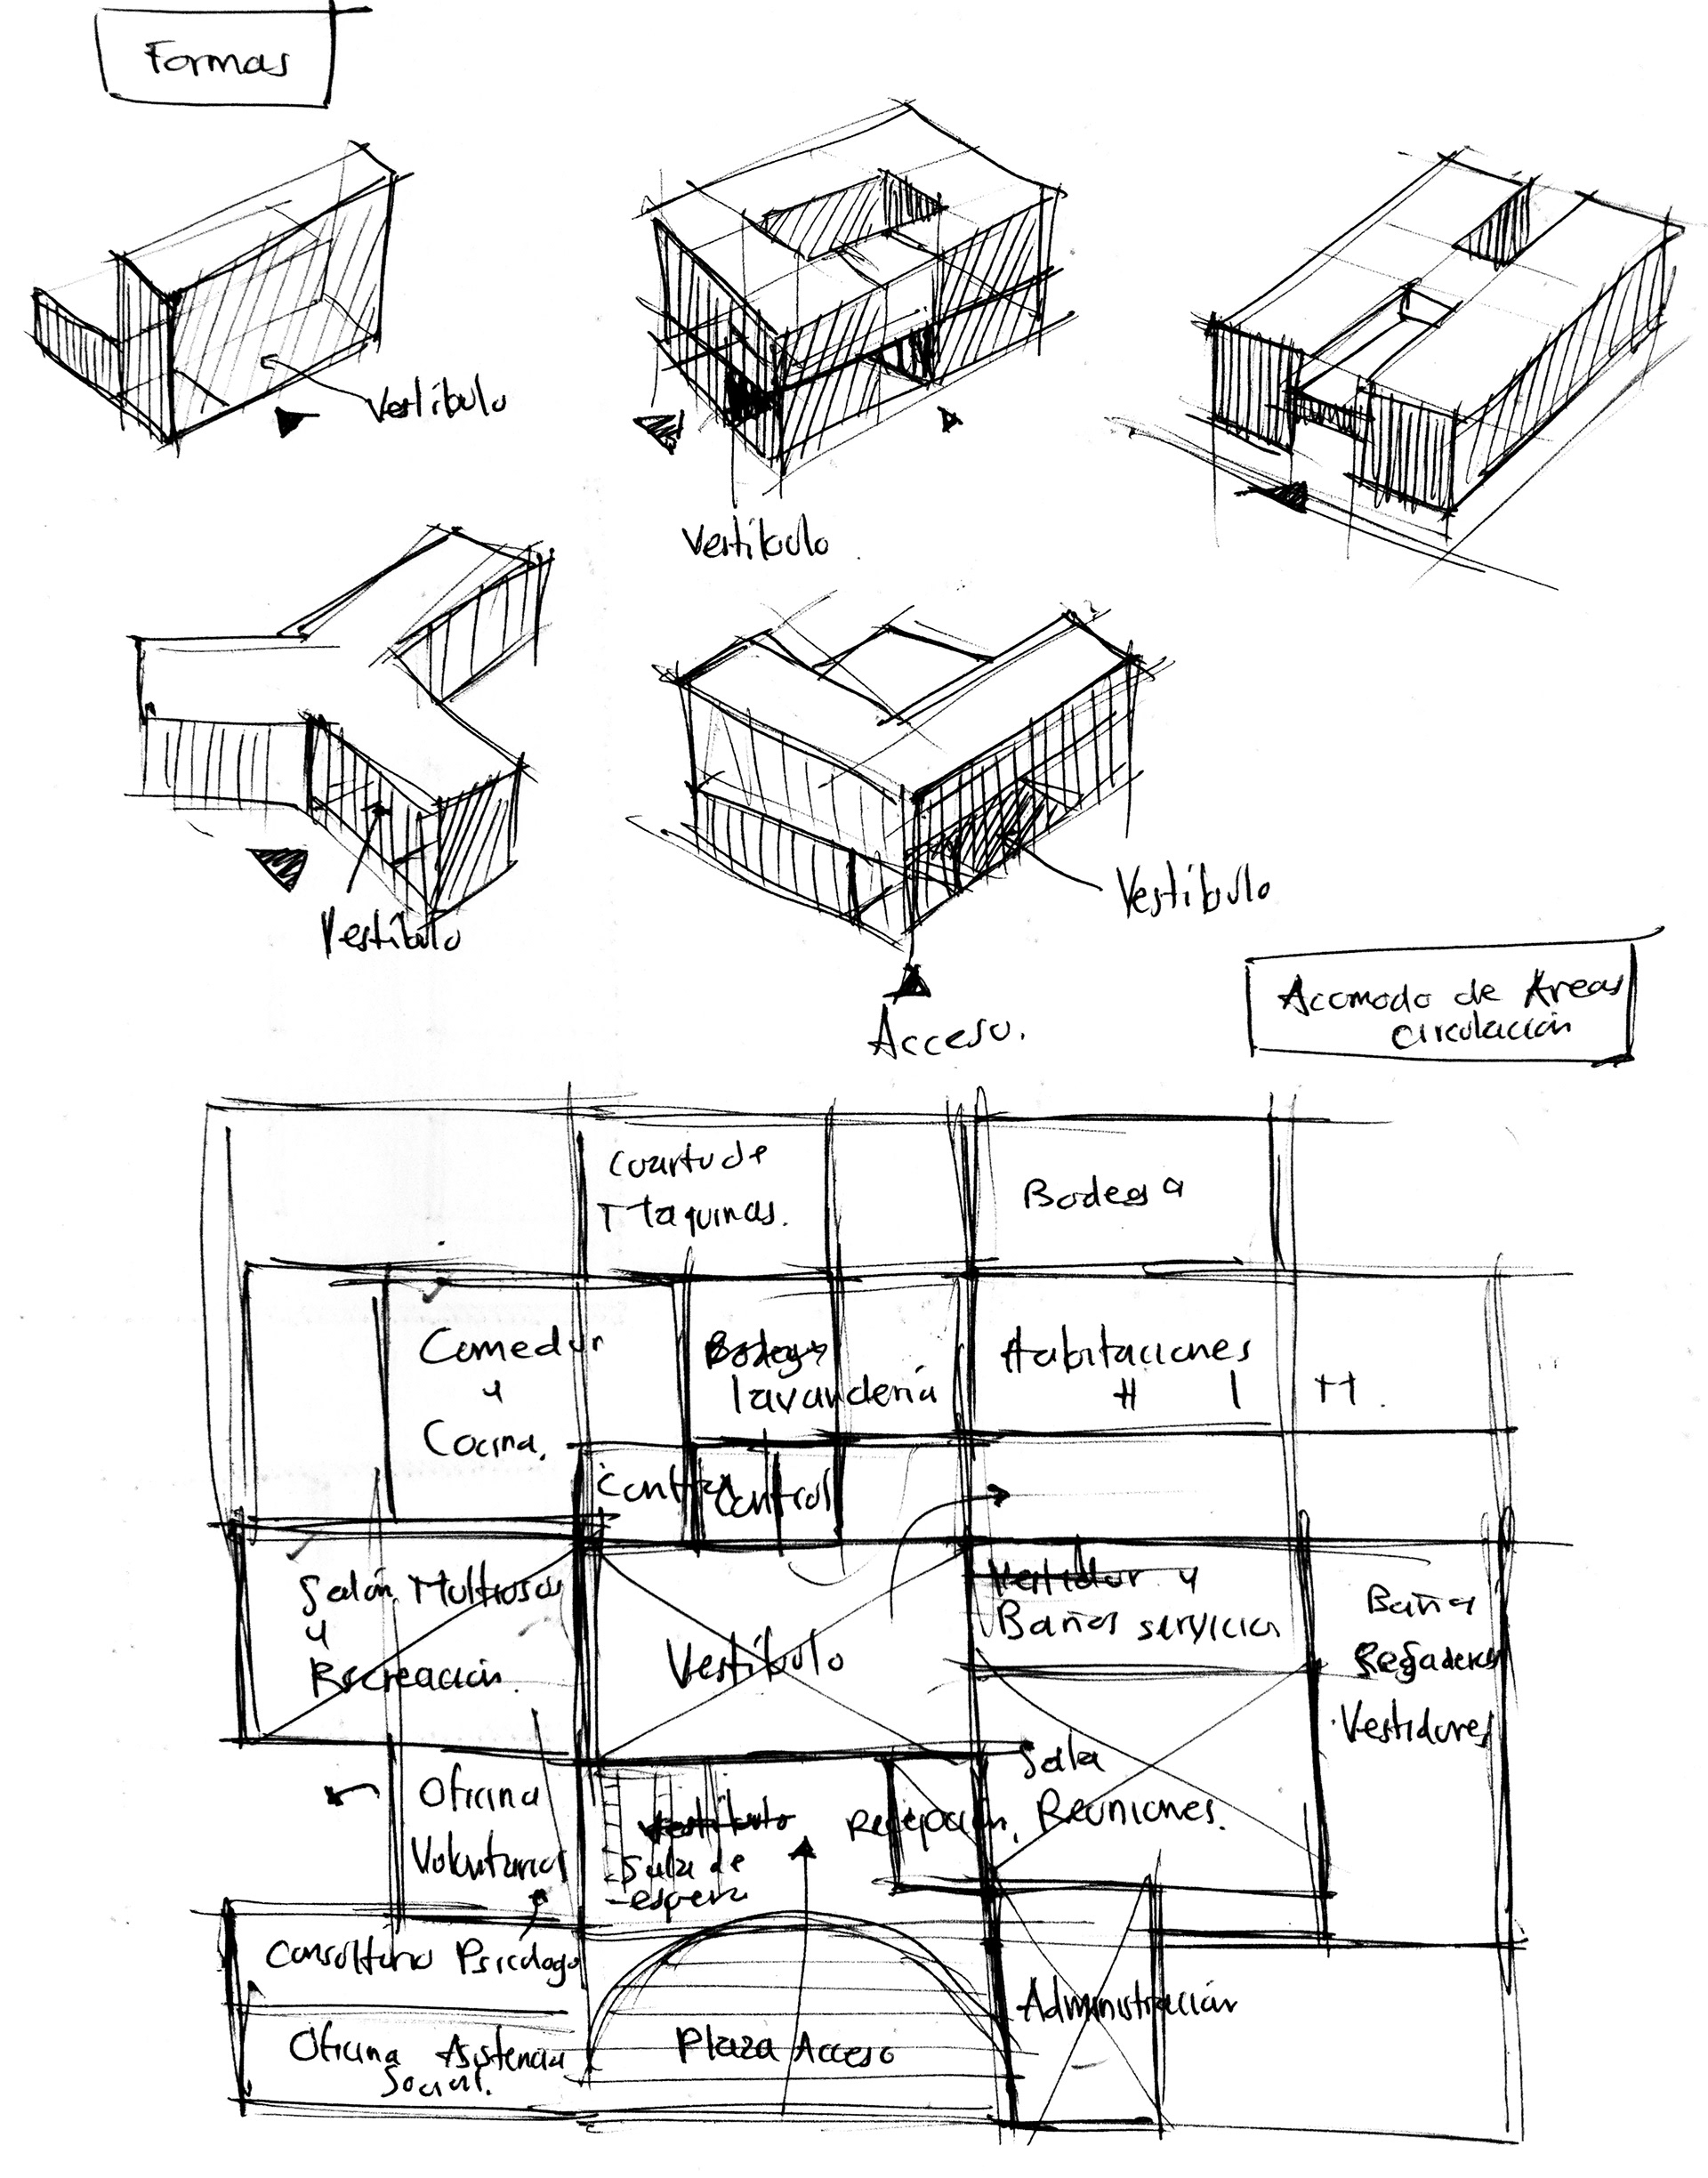 Formas
Vestíbulo
Vestíbulo
Vestíbulo
Vestíbulo
Acceso.
Acomodo de Areas
circulación
Cuarto de
Maquinas.
Bodega
Comedor
y
Cocina.
Bodega
lavandería
Habitaciones
H I H.
Control
Control
Salón Multiusos
y
Recreación.
Vestíbulo
Vestidor y
Baños servicio
Baños
Regaderas
Vestidores
Oficina
Voluntarios
Vestíbulo
Sala de
espera
Recepción.
Sala
Reuniones.
Consultorio Psicologo
Oficina Asistencia
Social.
Plaza Acceso
Administración